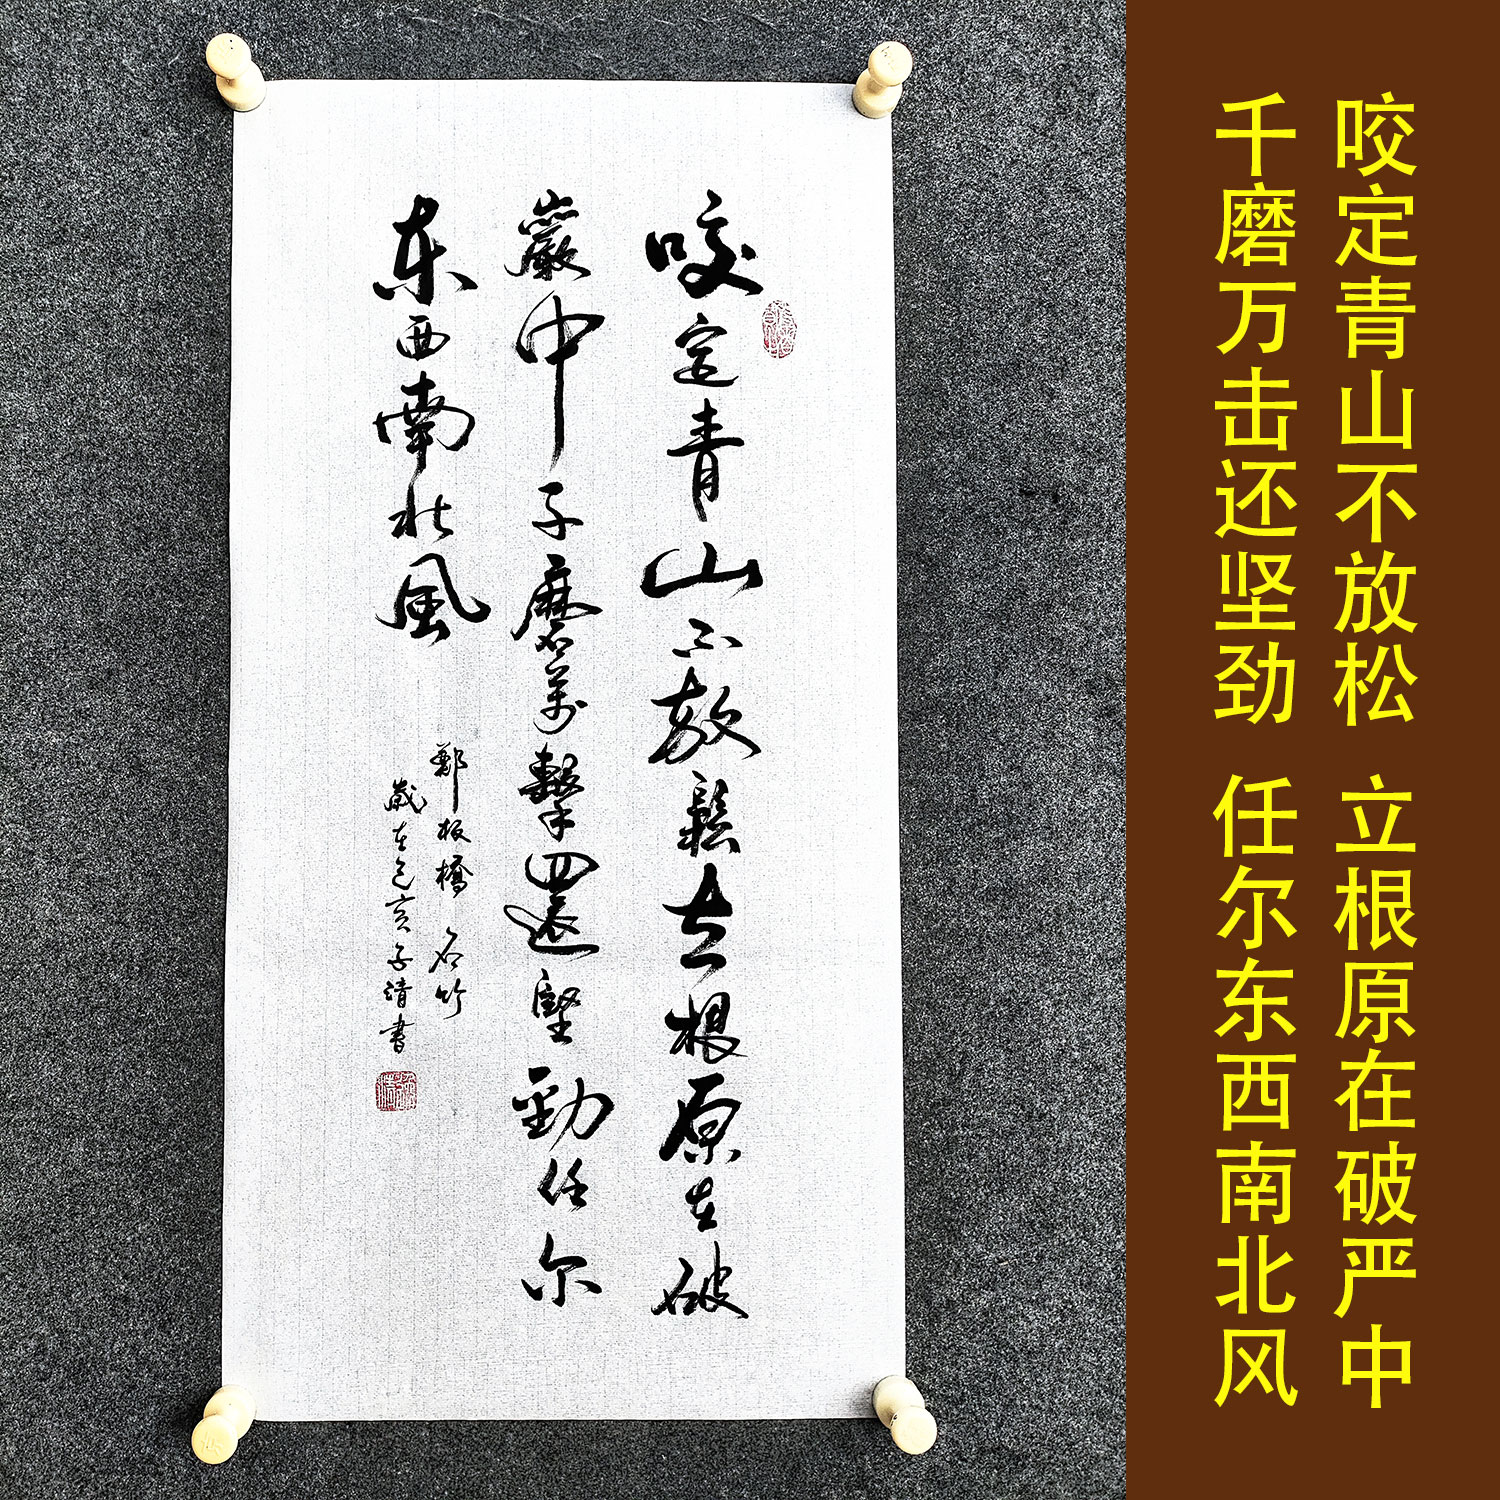 咬定青山不放鬆立根原在破
巖中子磨萬擊還堅勁任尔
东西南北風
鄭板橋 石竹
歲在己亥子清書
咬定青山不放松 立根原在破严中
千磨万击还坚劲 任尔东西南北风